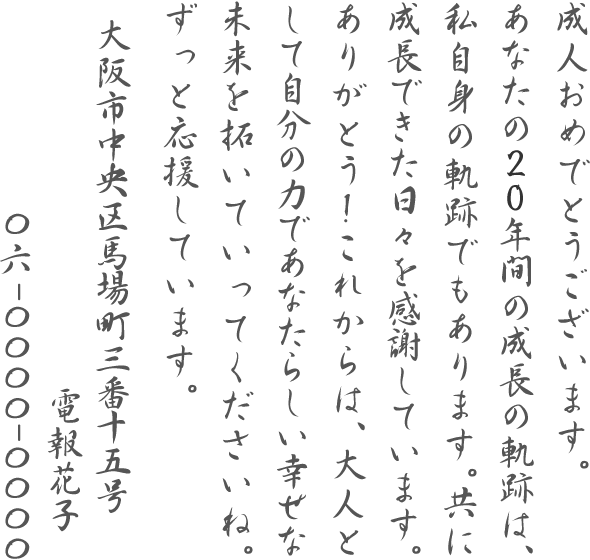 成人おめでとうございます。
あなたの20年間の成長の軌跡は、
私自身の軌跡でもあります。共に
成長できた日々を感謝しています。
ありがとう！これからは、大人と
して自分の力であなたらしい幸せな
未来を拓いていってくださいね。
ずっと応援しています。
大阪市中央区馬場町三番十五号
電報花子
〇六-〇〇〇〇-〇〇〇〇